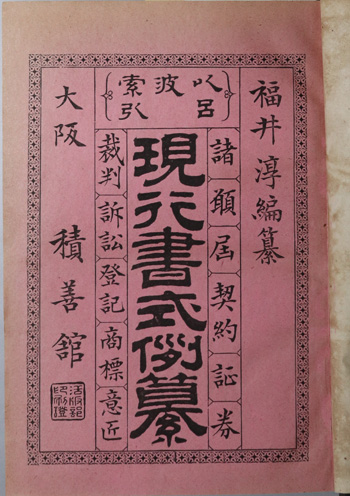 福井淳編纂
以呂波索引
諸願届契約証券
現行書式例纂
裁判訴訟登記商標意匠
大阪 積善舘